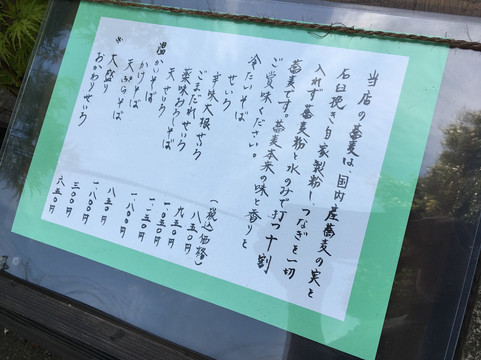 当店の蕎麦は、国内産蕎麦の実を
石臼挽き自家製粉し、つなぎを一切
入れず蕎麦粉と水のみで打つ十割
蕎麦です。蕎麦本来の味と香りを
ご賞味ください。
冷たいそば (税込価格)
せいろ 八五〇円
辛味大根せいろ 九五〇円
ごまだれせいろ 一・〇五〇円
薬味おろしそば 一・一五〇円
天せいろ 一・八〇〇円
温かいそば
かけそば 八五〇円
天ぷらそば 一・八〇〇円
※大盛り 三〇〇円
おかわりせいろ 六五〇円